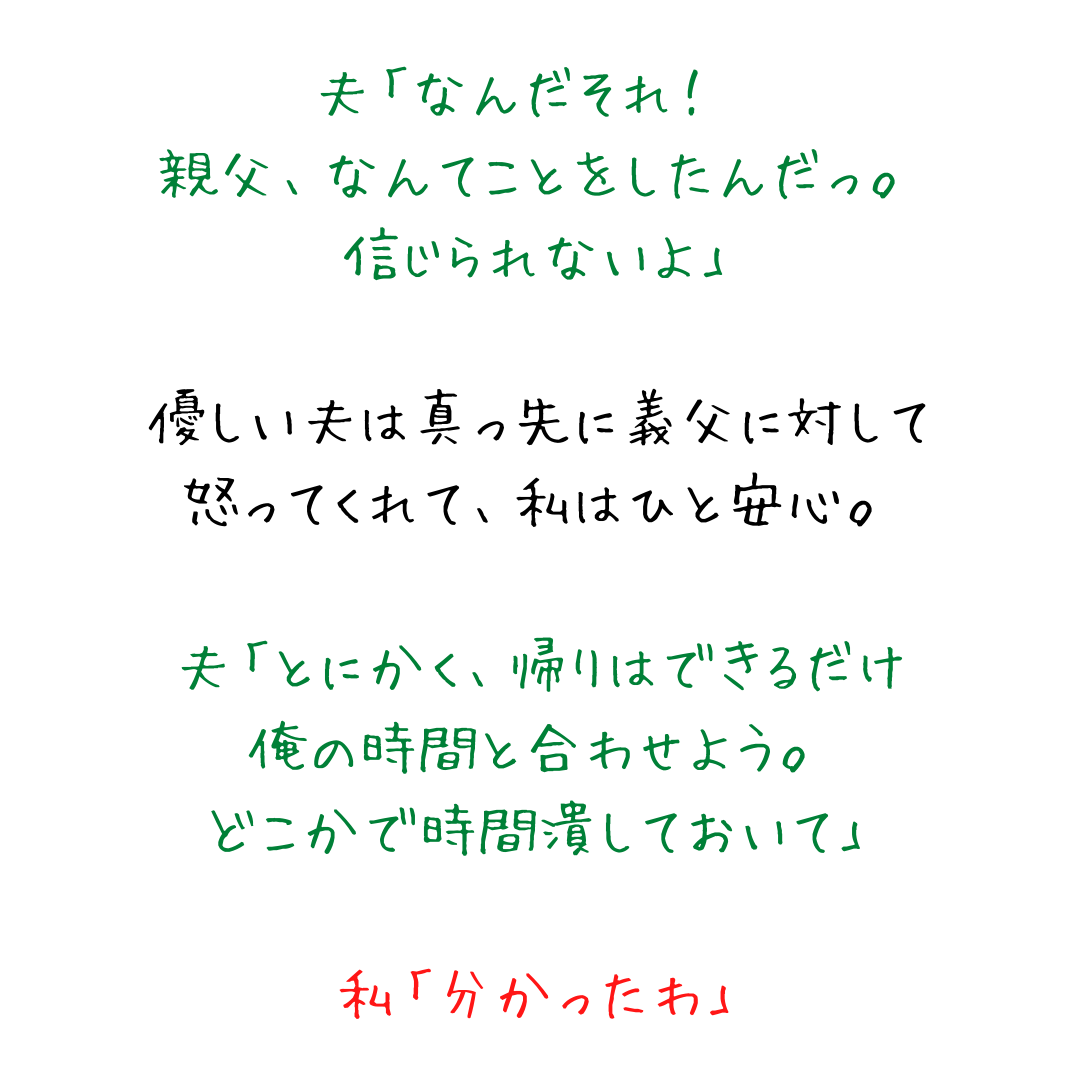 夫「なんだそれ！
親父、なんてことをしたんだっ。
信じられないよ」
優しい夫は真っ先に義父に対して
怒ってくれて、私はひと安心。
夫「とにかく、帰りはできるだけ
俺の時間と合わせよう。
どこかで時間潰しておいて」
私「分かったわ」